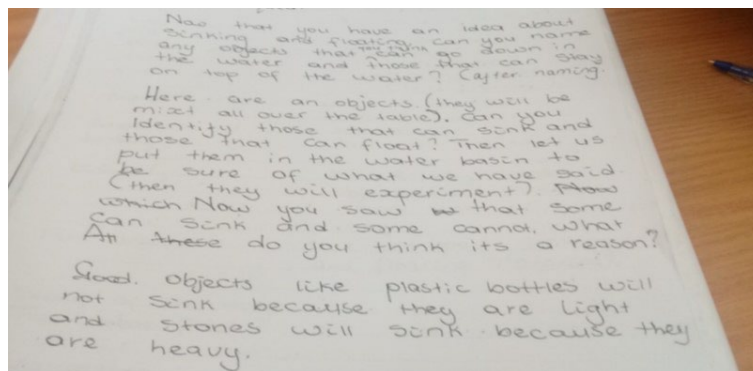 Now that you have an idea about
sinking and floating, can you name
any objects that you think can go down in
the water and those that can stay
on top of the water? (after naming.
Here are an objects (they will be
mixt all over the table). Can you
Identify those that can sink and
those that can float? Then let us
put them in the water basin to
be sure of what we have said.
(then they will experiment). Now
which Now you saw that some
can sink and some cannot. What
An these do you think its a reason?
Good. Objects like plastic bottles will
not sink because they are light
and stones will sink because they
are heavy.